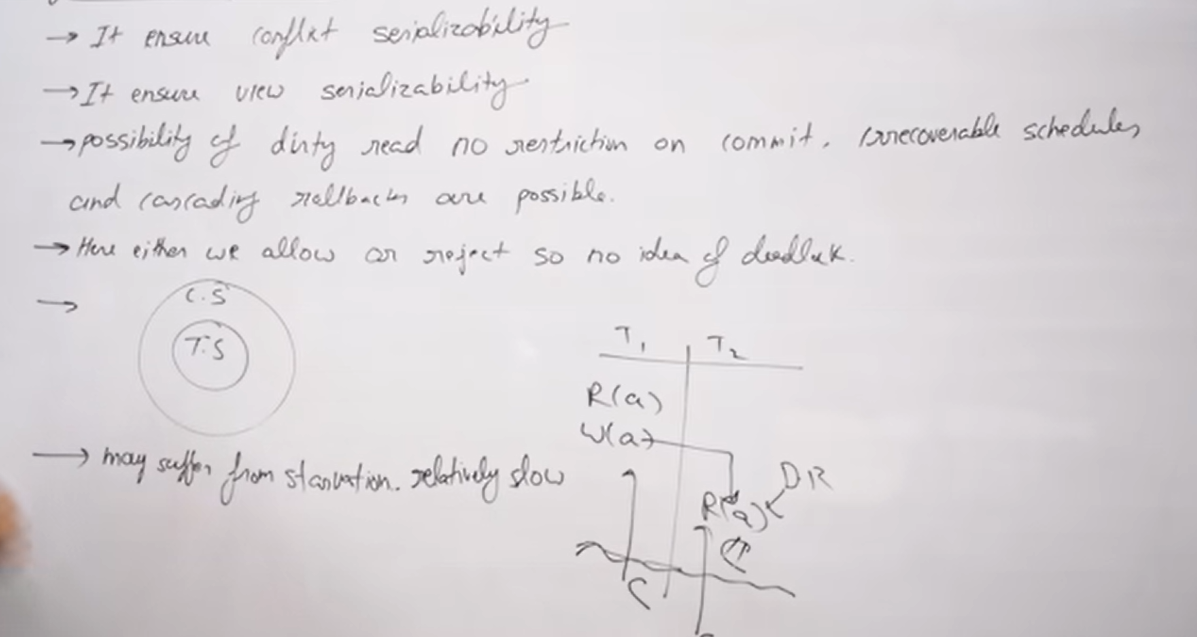 → It ensure conflict serializability
→ It ensure view serializability
→ possibility of dirty read no restriction on commit. irrecoverable schedules,
and cascading rollbacks are possible.
→ Here either we allow or reject so no idea of deadlock.
→ C.S
T.S
T₁ T₂
R(a)
W(a)
R(a) DR
C
→ may suffer from starvation. relatively slow